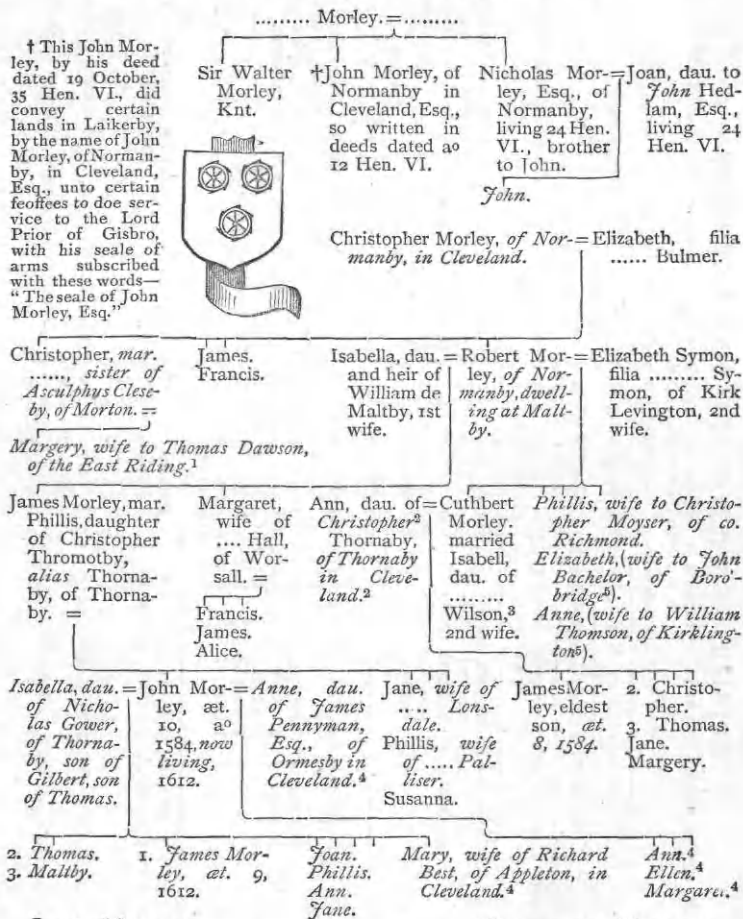 ......... Morley. = .........
† This John Mor-
ley, by his deed
dated 19 October,
35 Hen. VI., did
convey certain
lands in Laikerby,
by the name of John
Morley, of Norman-
by, in Cleveland,
Esq., unto certain
feoffees to doe ser-
vice to the Lord
Prior of Gisbro,
with his seale of
arms subscribed
with these words—
"The seale of John
Morley, Esq."
Sir Walter
Morley,
Knt.
†John Morley, of
Normanby in
Cleveland, Esq.,
so written in
deeds dated aº
12 Hen. VI.
Nicholas Mor-
ley, Esq., of
Normanby,
living 24 Hen.
VI., brother
to John.
=
Joan, dau. to
John Hed-
lam, Esq.,
living 24
Hen. VI.
John.
Christopher Morley, of Nor-
manby, in Cleveland.
=
Elizabeth, filia
...... Bulmer.
Christopher, mar.
......, sister of
Asculphus Clese-
by, of Morton. =
James.
Francis.
Isabella, dau.
and heir of
William de
Maltby, 1st
wife.
=
Robert Mor-
ley, of Nor-
manby, dwell-
ing at Malt-
by.
=
Elizabeth Symon,
filia ......... Sy-
mon, of Kirk
Levington, 2nd
wife.
Margery, wife to Thomas Dawson,
of the East Riding.¹
James Morley, mar.
Phillis, daughter
of Christopher
Thromotby,
alias Thorna-
by, of Thorna-
by. =
Margaret,
wife of
.... Hall,
of Wor-
sall. =
Francis.
James.
Alice.
Ann, dau. of
Christopher²
Thornaby,
of Thornaby
in Cleve-
land.²
=
Cuthbert
Morley.
married
Isabell,
dau. of
.........
Wilson,³
2nd wife.
Phillis, wife to Christo-
pher Moyser, of co.
Richmond.
Elizabeth, (wife to John
Bachelor, of Boro'-
bridge⁵).
Anne, (wife to William
Thomson, of Kirkling-
ton⁵).
Isabella, dau.
of Nicho-
las Gower,
of Thorna-
by, son of
Gilbert, son
of Thomas.
=
John Mor-
ley, æt.
10, aº
1584, now
living,
1612.
=
Anne, dau.
of James
Pennyman,
Esq., of
Ormesby in
Cleveland.⁴
Jane, wife of
..... Lons-
dale.
Phillis, wife
of ..... Pal-
liser.
Susanna.
James Mor-
ley, eldest
son, æt.
8, 1584.
2. Christo-
pher.
3. Thomas.
Jane.
Margery.
2. Thomas.
3. Maltby.
1. James Mor-
ley, æt. 9,
1612.
Joan.
Phillis.
Ann.
Jane.
Mary, wife of Richard
Best, of Appleton, in
Cleveland.⁴
Ann.⁴
Ellen.⁴
Margaret.⁴